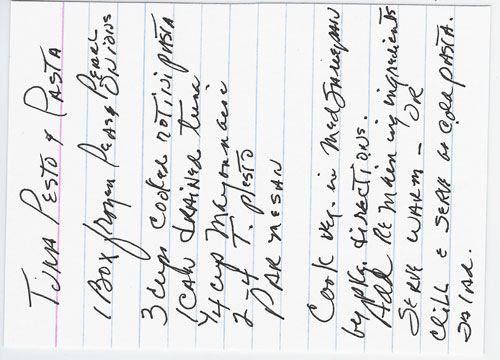 TUNA PESTO & PASTA
1 Box frozen Peas & Pearl ONIONS
3 cups cooked rotini pasta
1 CAN drained tuna
1/4 cup Mayonnaise
2-4 T. Pesto
PARMESAN
Cook veg. in Med Fry pan
by pkg. directions.
Add REMaining ingredients
SERVE WARM - OR
chill & SERVE as cold PASTA.
salad.